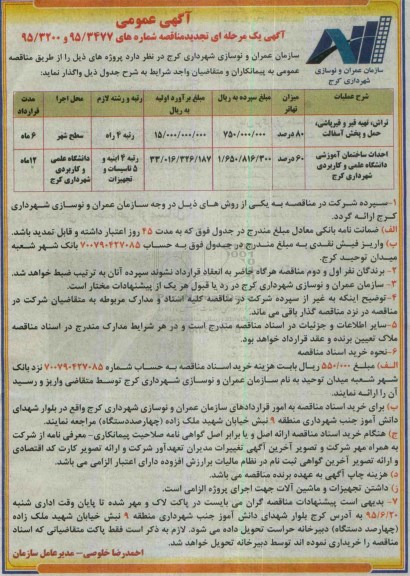 آگهی عمومی
آگهی یک مرحله ای تجدیدمناقصه شماره های ۹۵/۳۴۷۷ و ۹۵/۳۲۰۰
سازمان عمران و نوسازی شهرداری کرج در نظر دارد پروژه های ذیل را از طریق مناقصه
عمومی به پیمانکاران و متقاضیان واجد شرایط به شرح جدول ذیل واگذار نماید:
سازمان عمران و نوسازی
شهرداری کرج
شرح عملیات
میزان تهاتر
مبلغ سپرده به ریال
مبلغ برآورد اولیه به ریال
رتبه و رشته لازم
محل اجرا
مدت قرارداد
تراش، تهیه قیر و قیرپاشی، حمل و پخش آسفالت
۸۰ درصد
۷۵۰/۰۰۰/۰۰۰
۱۵/۰۰۰/۰۰۰/۰۰۰
رتبه ۴ راه
سطح شهر
۶ ماه
احداث ساختمان آموزشی دانشگاه علمی و کاربردی شهرداری کرج
۶۰ درصد
۱/۶۵۰/۸۱۶/۳۰۰
۳۳/۰۱۶/۳۲۶/۱۸۷
رتبه ۴ ابنیه و ۵ تاسیسات و تجهیزات
دانشگاه علمی و کاربردی شهرداری کرج
۱۲ماه
۱-سپرده شرکت در مناقصه به یکی از روش های ذیل در وجه سازمان عمران و نوسازی شهرداری
کرج ارائه گردد.
الف) ضمانت نامه بانکی معادل مبلغ مندرج در جدول فوق که به مدت ۴۵ روز اعتبار داشته و قابل تمدید باشد.
ب) واریز فیش نقدی به مبلغ مندرج در جدول فوق به حساب ۷۰۰۷۹۰۴۲۷۰۸۵ بانک شهر شعبه
میدان توحید کرج.
۲- برندگان نفر اول و دوم مناقصه هرگاه حاضر به انعقاد قرارداد نشوند سپرده آنان به ترتیب ضبط خواهد شد.
۳- سازمان عمران و نوسازی شهرداری کرج در رد یا قبول هر یک از پیشنهادات مختار است.
۴-توضیح اینکه به غیر از سپرده شرکت در مناقصه کلیه اسناد و مدارک مربوطه به متقاضیان شرکت در
مناقصه در نزد مناقصه گذار باقی می ماند.
۵-سایر اطلاعات و جزئیات در اسناد مناقصه مندرج است و در هر شرایط مدارک مندرج در اسناد مناقصه
ملاک تعیین برنده و عقد قرارداد خواهد بود.
۶-نحوه خرید اسناد مناقصه
الف) مبلغ ۵۵۰/۰۰۰ ریال بابت هزینه خرید اسناد مناقصه به حساب شماره ۷۰۰۷۹۰۴۲۷۰۸۵ نزد بانک
شهر شعبه میدان توحید به نام سازمان عمران و نوسازی شهرداری کرج توسط متقاضی واریز و رسید
آن را ارائه نمایند.
ب) برای خرید اسناد مناقصه به امور قراردادهای سازمان عمران و نوسازی شهرداری کرج واقع در بلوار شهدای
دانش آموز جنب شهرداری منطقه ۹ نبش خیابان شهید ملک زاده (چهارصددستگاه) مراجعه نمایند.
ج) هنگام خرید اسناد مناقصه ارائه اصل و یا برابر اصل گواهی نامه صلاحیت پیمانکاری- معرفی نامه از شرکت
به همراه مهر شرکت و تصویر آخرین آگهی تغییرات مدیران تعهدآور شرکت و ارائه تصویر کارت کد اقتصادی
و ارائه تصویر آخرین گواهی ثبت نام در نظام مالیات برارزش افزوده دارای اعتبار الزامی می باشد.
د) هزینه چاپ آگهی به عهده برنده مناقصه می باشد.
ز) داشتن تجهیزات و ماشین آلات جهت اجرای پروژه الزامی است.
۷- بدیهی است پیشنهادات مناقصه گران می بایست در پاکت لاک و مهر شده تا پایان وقت اداری شنبه
۹۵/۶/۲۰ به آدرس کرج بلوار شهدای دانش آموز جنب شهرداری منطقه ۹ نبش خیابان شهید ملک زاده
(چهارصد دستگاه) دبیرخانه حراست تحویل داده می شود. لازم به ذکر است فقط پاکت متقاضیانی که اسناد
مناقصه را خریداری نموده اند توسط دبیرخانه تحویل خواهد شد.
احمدرضا خلوصی- مدیرعامل سازمان